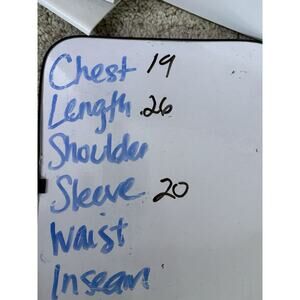 Chest 19
Length 26
Shoulder
Sleeve 20
Waist
Inseam